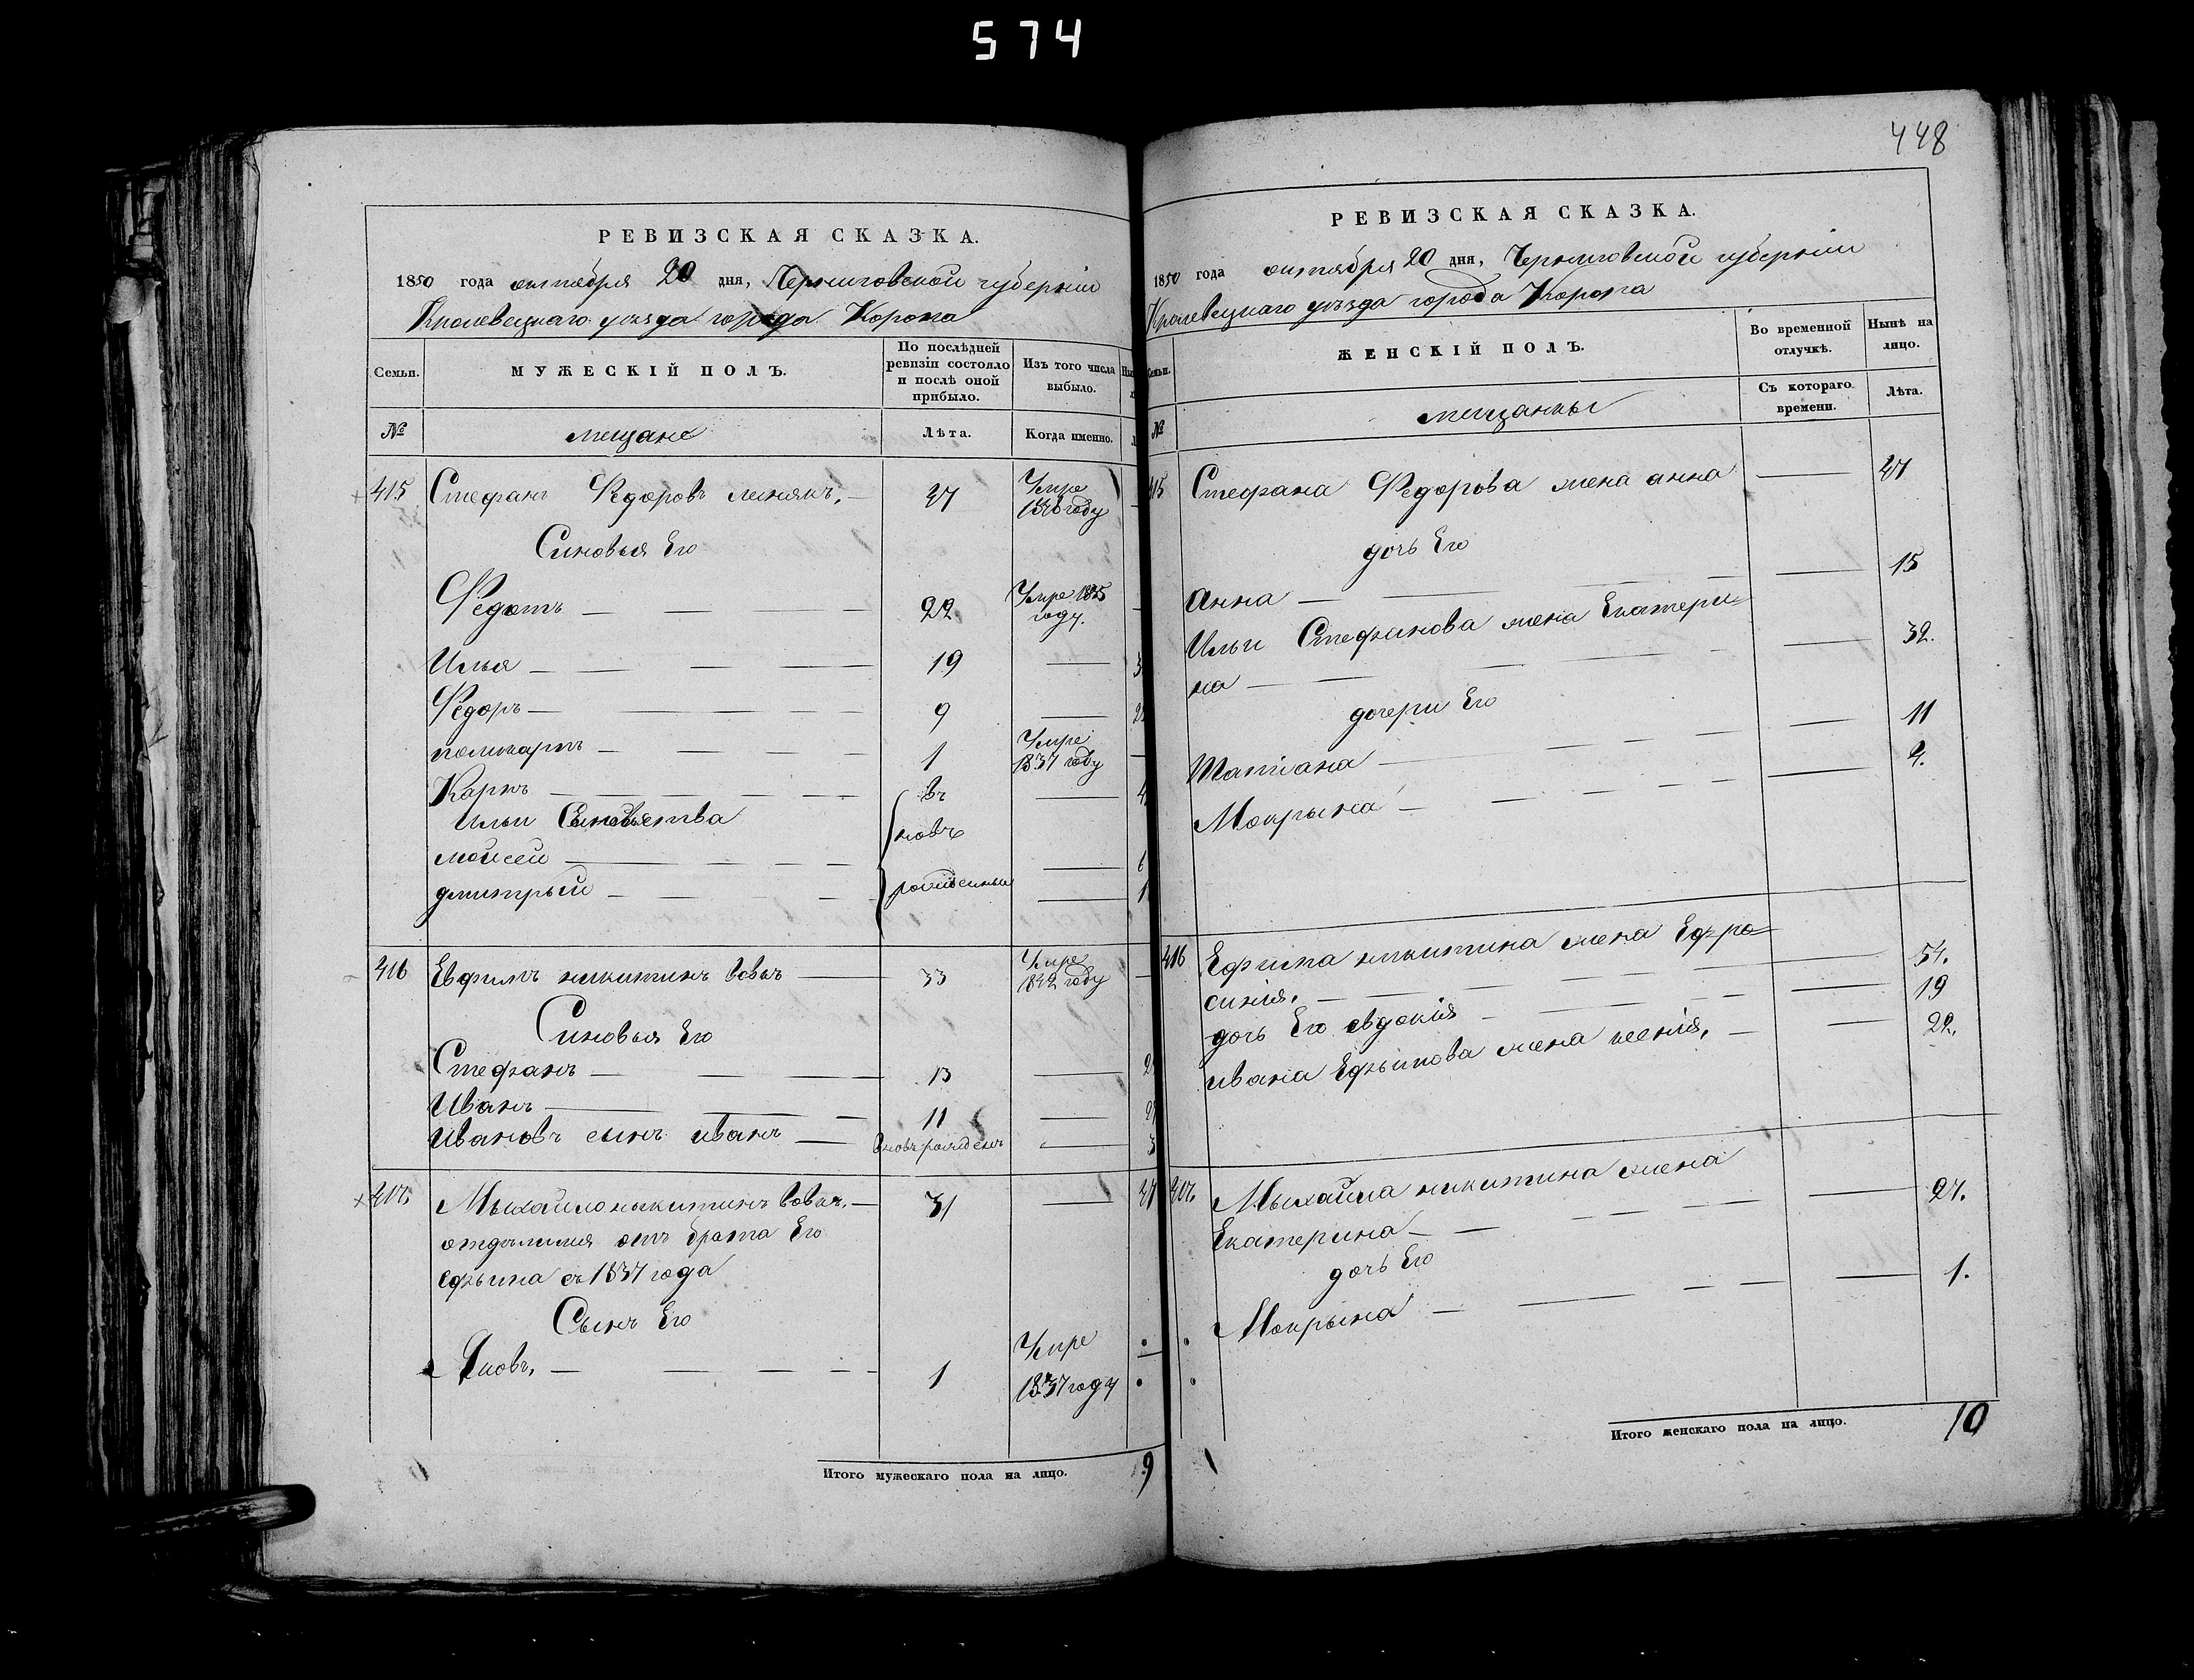 574
448
РЕВИЗСКАЯ СКАЗКА.
1850 года октября 20 дня, Черниговской губерніи
Кролевецкаго уѣзда города Коропа
Семьи.
МУЖЕСКІЙ ПОЛЪ.
По послѣдней ревизіи состояло и послѣ оной прибыло.
Изъ того числа выбыло.
№
мещане
Лѣта.
Когда именно.
415 Стефанъ Федоровъ 37 Умре
году
Синовья Его
Федотъ 22 Умре 1835
году.
Илья 19
Федоръ 9
поликарпъ 1 Умре
1837 году
Карпъ въ
Ильи
новѣ
мойсей
дмитрый рожденны
416 Евфимъ никитинъ вовкъ 33 Умре
1842 году
Синовья Его
Стефанъ 13
Иванъ 11
Ивановъ сынъ иванъ вновь рожденъ
417. Мыхайло никитинъ вовкъ. 31
отделился отъ брата Его
Ефыма съ 1837 года
Сынъ Его
Яковъ. 1 Умре
1837 году
Итого мужескаго пола на лицо. 9
РЕВИЗСКАЯ СКАЗКА.
1850 года октября 20 дня, Черниговской губерніи
Кролевецкаго уѣзда города Коропа
Семьи.
ЖЕНСКІЙ ПОЛЪ.
Во временной отлучкѣ.
Нынѣ на лицо.
№
мещанкы
Съ котораго времени.
Лѣта.
415 Стефана Федорова жена анна 47
дочь Его
анна 15
Ильи Стефанова жена Екатери-
на 32.
дочери Его
Татіана 11
Мокрына
416 Ефима никитина жена Ефро-
синія. 54.
дочь Его евдокія 19
ивана Ефымова жена ксенія. 22.
417. Мыхайла никитина жена
Екатерина 27.
дочь Его
Мокрына 1.
Итого женскаго пола на лицо. 10